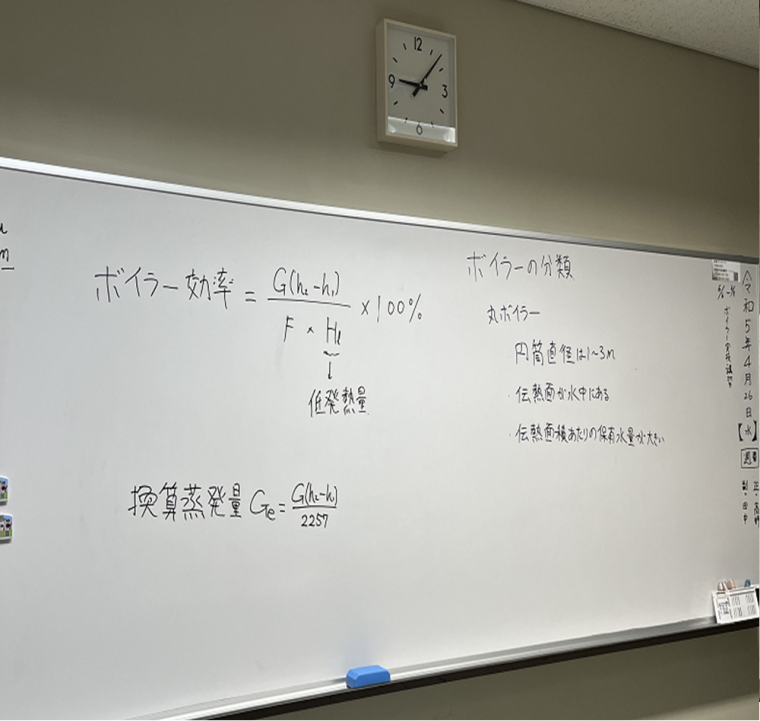 ボイラー効率 = G(h₂-h₁) / F × Hℓ × 100%
↓
低発熱量
換算蒸発量 Ge = G(h₂-h₁) / 2257
ボイラーの分類
丸ボイラー
円筒直径は1~3m
・伝熱面が水中にある
・伝熱面積あたりの保有水量が大きい
令和5年4月26日【水】
週番
12
3
6
9